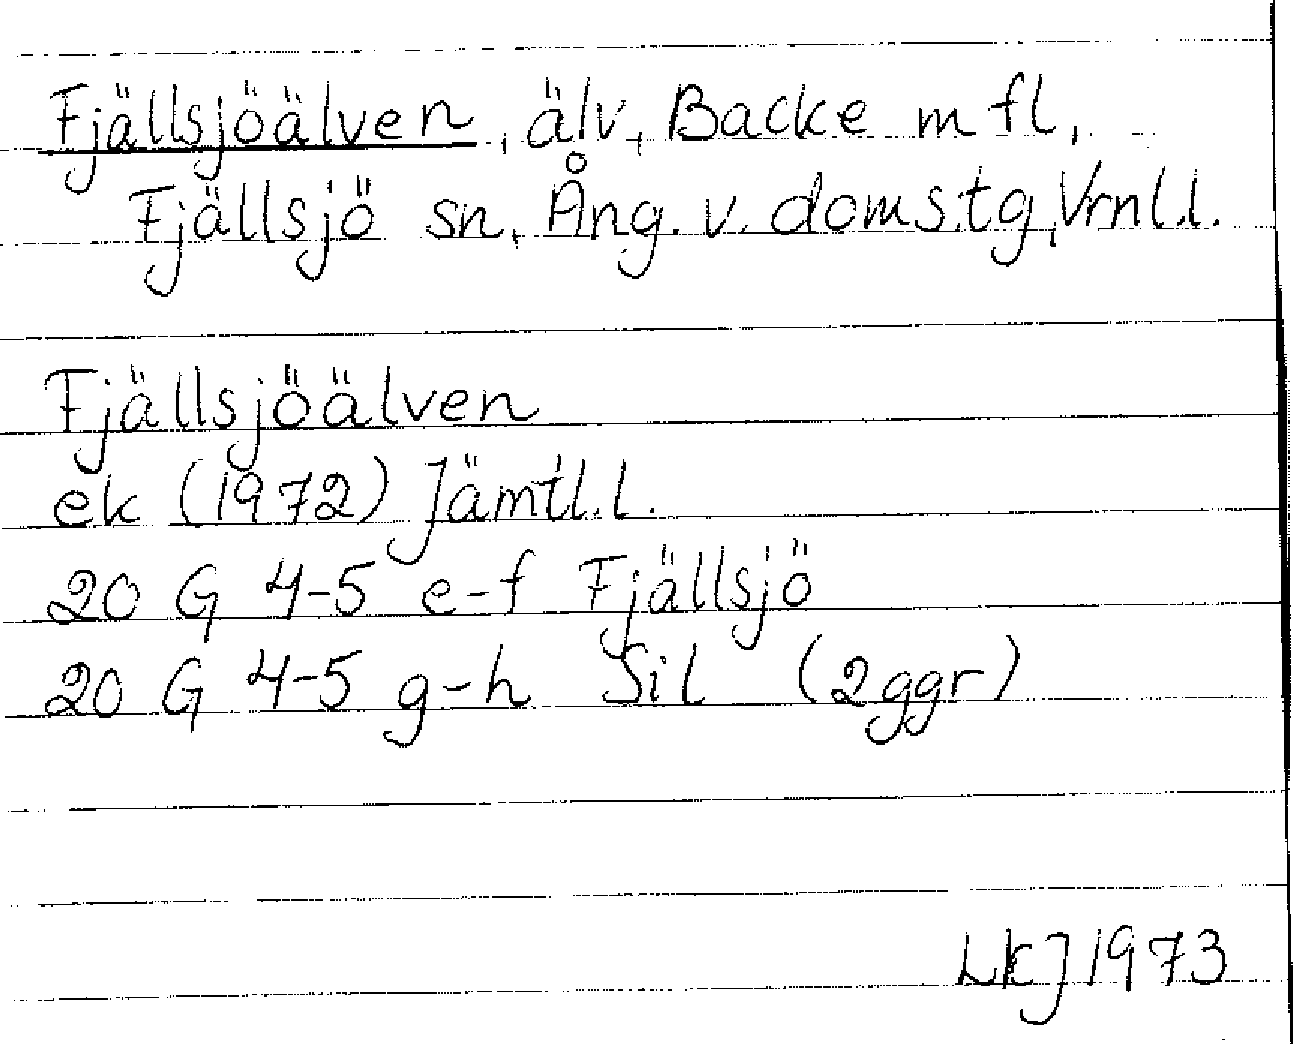 Fjällsjöälven, älv, Backe m fl,
Fjällsjö sn, Ång. v. doms.tg, Vrnl.l.
Fjällsjöälven
ek (1972) Jämtl.l.
20 G 4-5 e-f Fjällsjö
20 G 4-5 g-h Sil (2ggr)
LkJ 1973